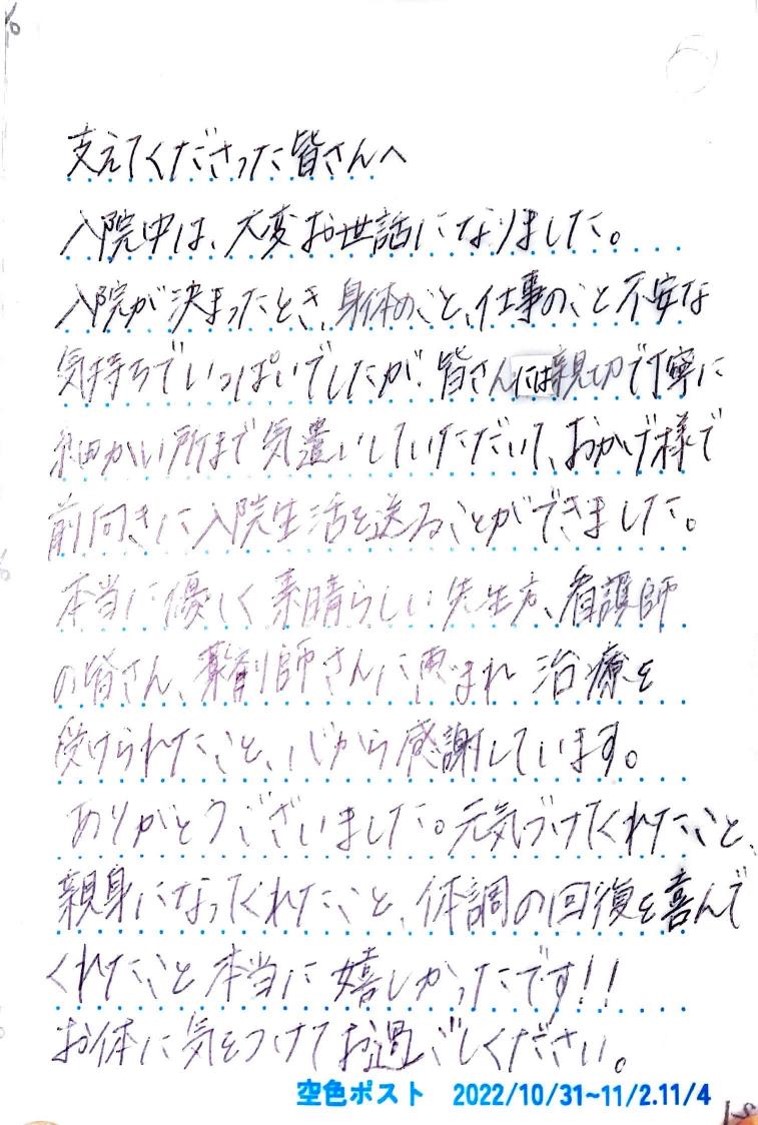 支えてくださった皆さんへ
入院中は、大変お世話になりました。
入院が決まったとき、身体のこと、仕事のこと不安な
気持ちでいっぱいでしたが、皆さんには親切で丁寧に
細かい所まで気遣いしていただいて、おかげ様で
前向きに入院生活を送ることができました。
本当に優しく素晴らしい先生方、看護師
の皆さん、薬剤師さんに恵まれ治療を
受けられたこと、心から感謝しています。
ありがとうございました。元気づけてくれたこと、
親身になってくれたこと、体調の回復を喜んで
くれたこと本当に嬉しかったです!!
お体に気をつけてお過ごしください。
空色ポスト 2022/10/31~11/2.11/4